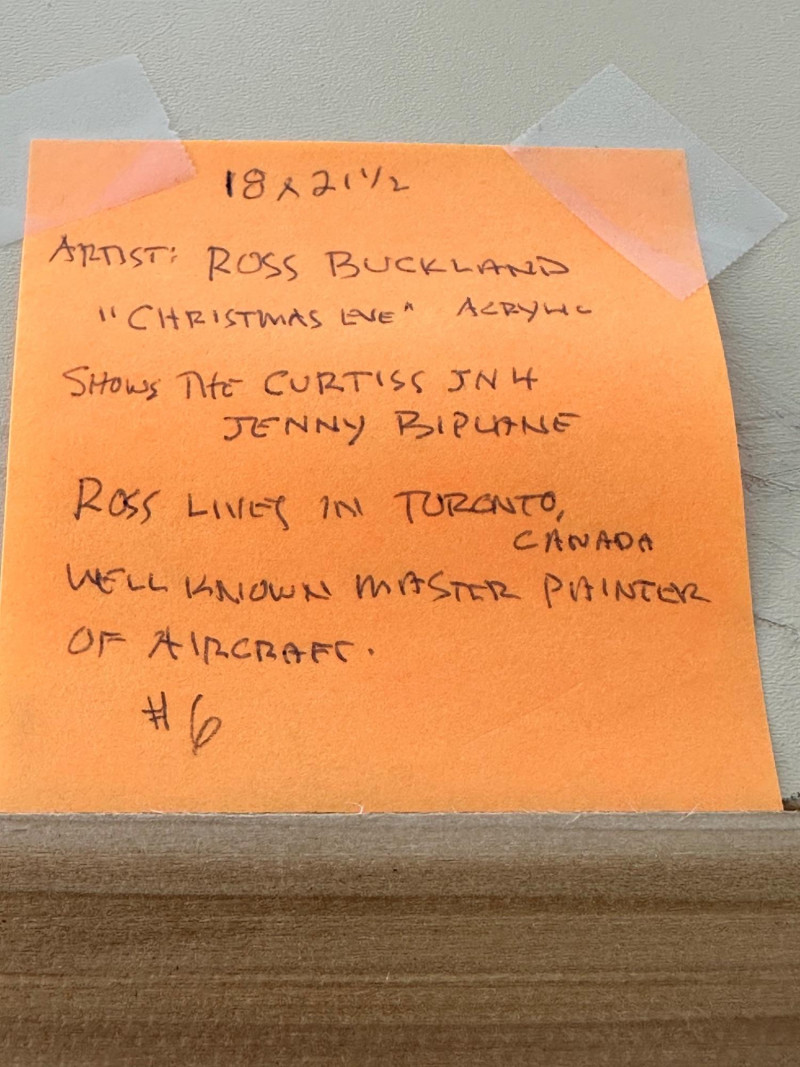 18 x 21 1/2
ARTIST: ROSS BUCKLAND
"CHRISTMAS EVE" ACRYLIC
SHOWS THE CURTISS JN4
JENNY BIPLANE
ROSS LIVES IN TORONTO,
CANADA
WELL KNOWN MASTER PAINTER
OF AIRCRAFT.
#6